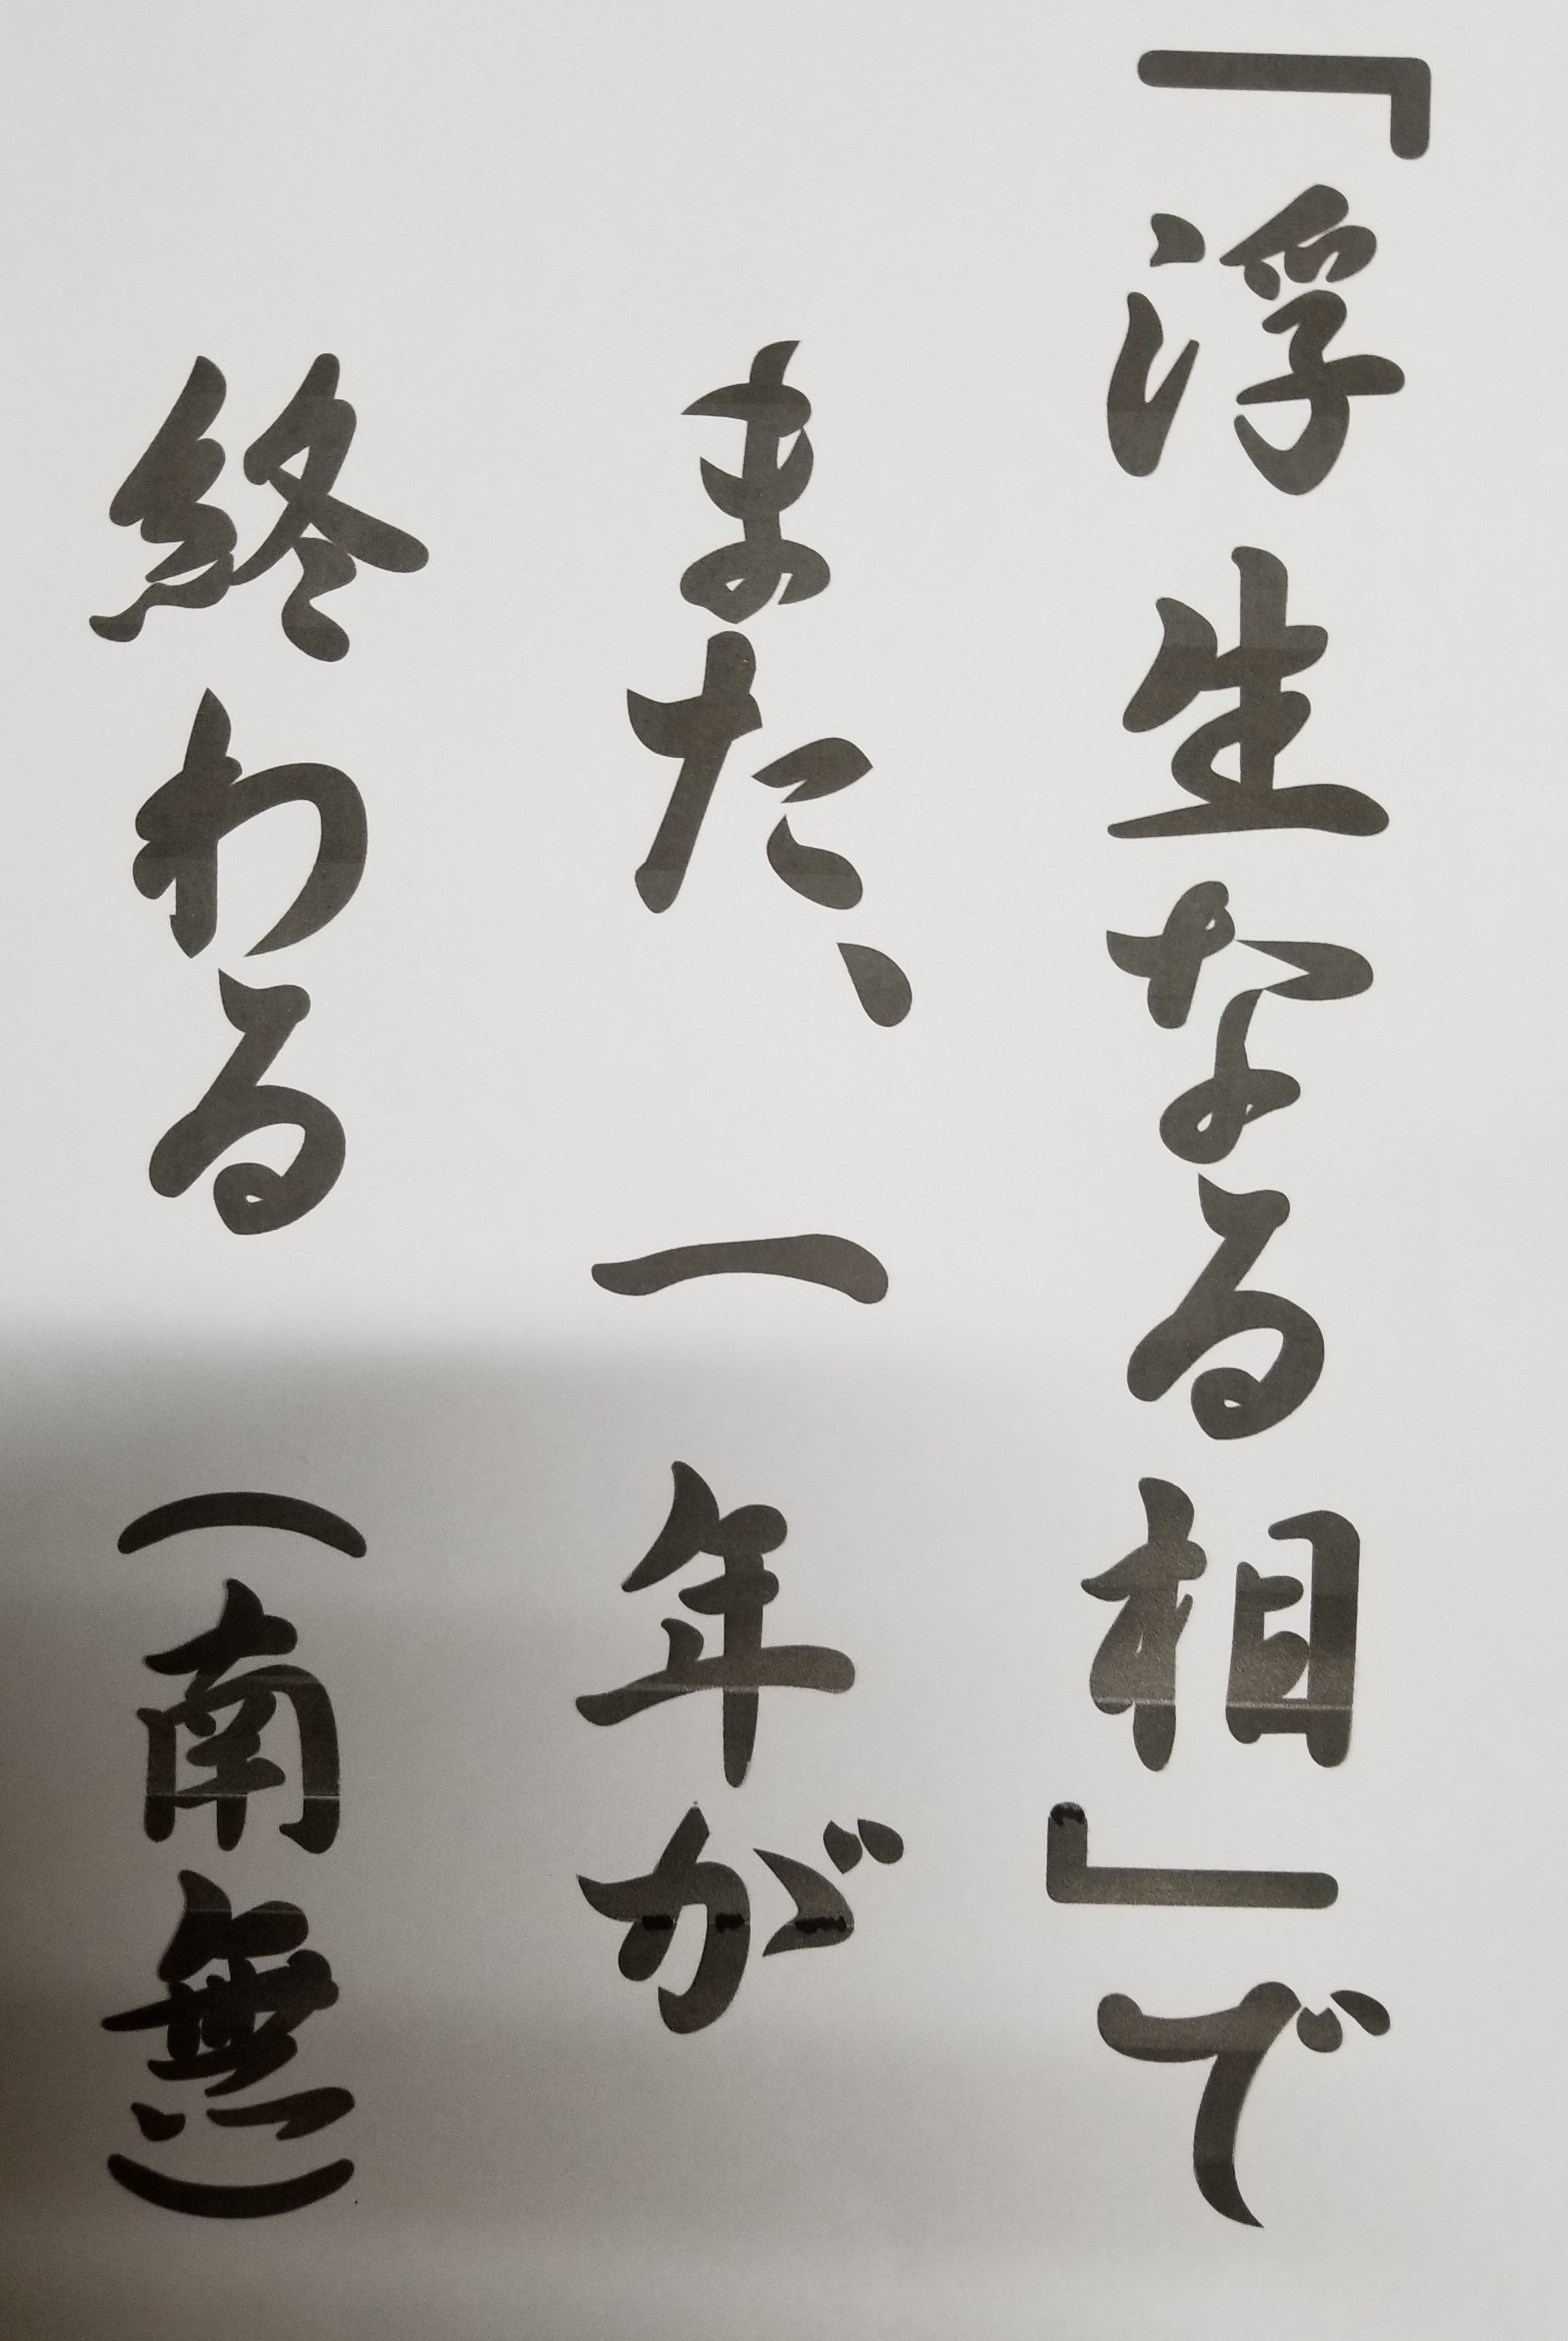 「浮生なる相」で
また、一年が
終わる（南無）